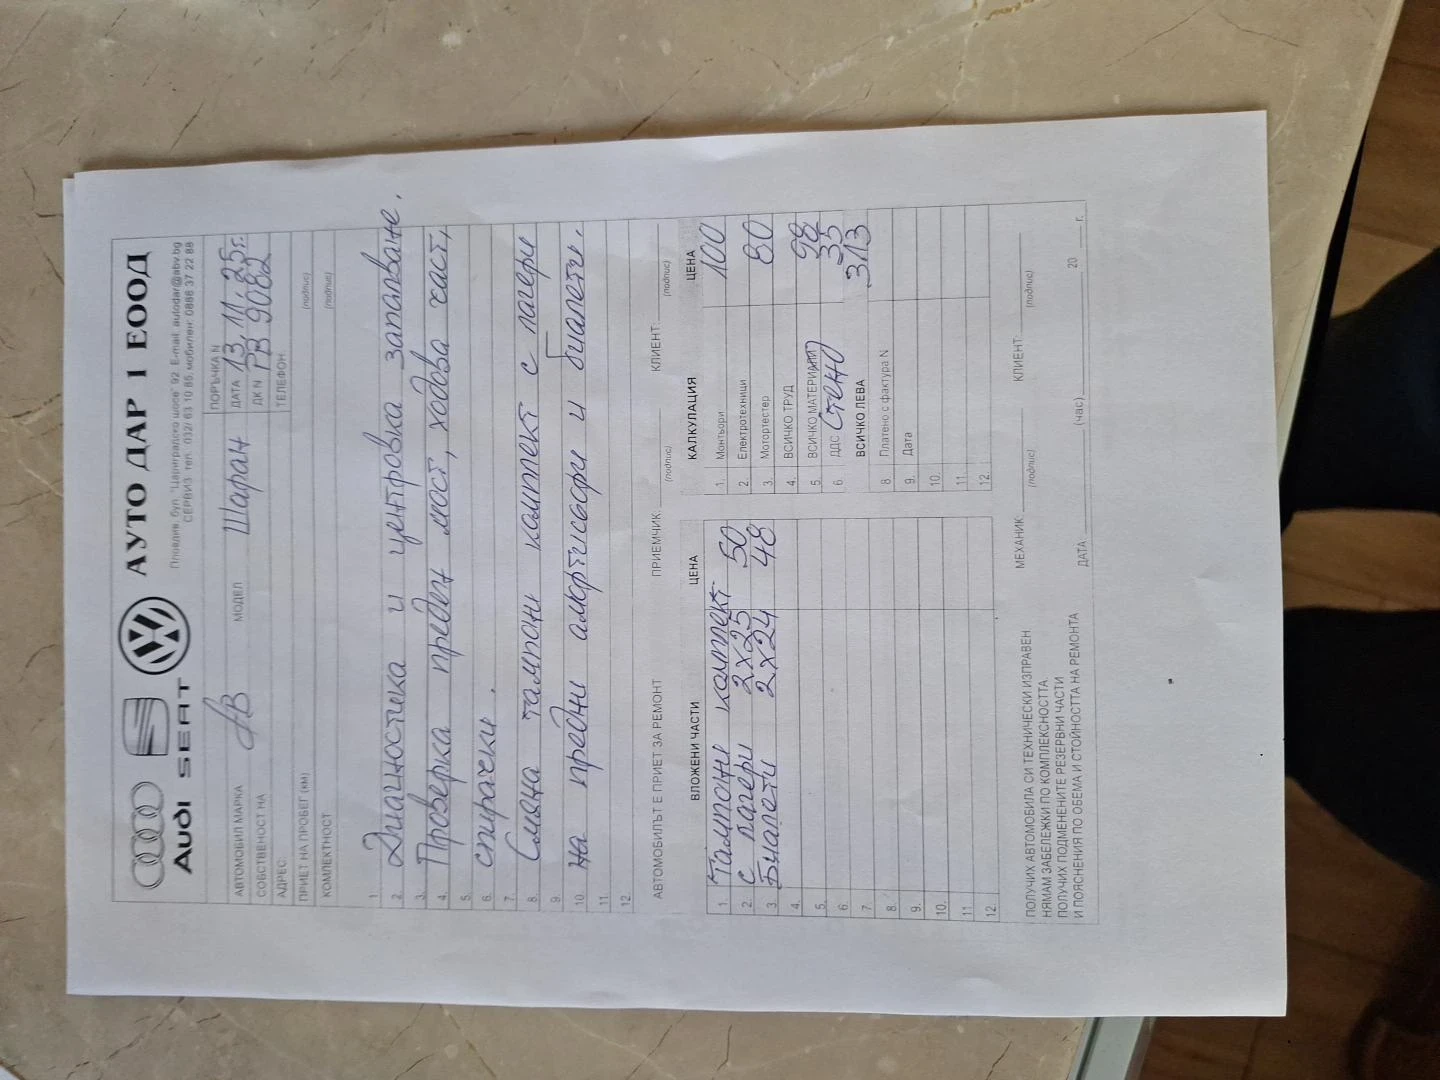 Audi SEAT
АУТО ДАР 1 ЕООД
Пловдив, бул. "Цариградско шосе" 92 E-mail: autodar@abv.bg
СЕРВИЗ: тел. 032/ 63 10 85, мобилен: 0888 37 22 88
АВТОМОБИЛ МАРКА МОДЕЛ Шаран ПОРЪЧКА N
СОБСТВЕНОСТ НА ДАТА 13.11.25г.
АДРЕС: ДК N РВ 9082
ПРИЕТ НА ПРОБЕГ (КМ) ТЕЛЕФОН
(подпис)
КОМПЛЕКТНОСТ (подпис)
1.
2. Диагностика и центровка запалване.
3.
4. Проверка преден мост, ходова част,
5.
6. спирачки.
7.
8. Смяна тампони комплект с лагери
9.
10. на предни амортисьори и биалети.
11.
12.
АВТОМОБИЛЪТ Е ПРИЕТ ЗА РЕМОНТ ПРИЕМЧИК: (подпис) КЛИЕНТ: (подпис)
ВЛОЖЕНИ ЧАСТИ ЦЕНА
1. Тампони комплект
2. с лагери 2x25 50
3. Биалети 2x24 48
4.
5.
6.
7.
8.
9.
10.
11.
12.
КАЛКУЛАЦИЯ ЦЕНА
1. Монтьори 100
2. Електротехници
3. Мотортестер 80
4. ВСИЧКО ТРУД
5. ВСИЧКО МАТЕРИАЛИ 98
6. ДДС 35
ВСИЧКО ЛЕВА 313
8. Платено с фактура N
9. Дата
10.
11.
12.
ПОЛУЧИХ АВТОМОБИЛА СИ ТЕХНИЧЕСКИ ИЗПРАВЕН
НЯМАМ ЗАБЕЛЕЖКИ ПО КОМПЛЕКСНОСТТА.
ПОЛУЧИХ ПОДМЕНЕНИТЕ РЕЗЕРВНИ ЧАСТИ
И ПОЯСНЕНИЯ ПО ОБЕМА И СТОЙНОСТТА НА РЕМОНТА
МЕХАНИК: (подпис) КЛИЕНТ: (подпис)
ДАТА (час) 20 г.